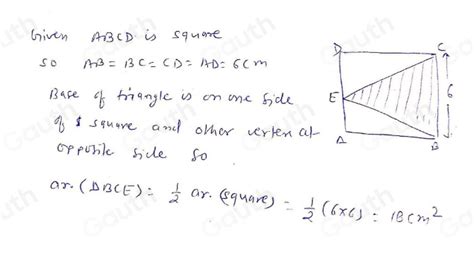 Given ABCD is square
so AB = BC = CD = AD = 6cm
Base of triangle is on one side
of square and other vertex at
opposite side so
ar. (ΔBCE) = 1/2 ar. (square) = 1/2 (6×6) = 18cm²
D C
E 6
A B
Gauth